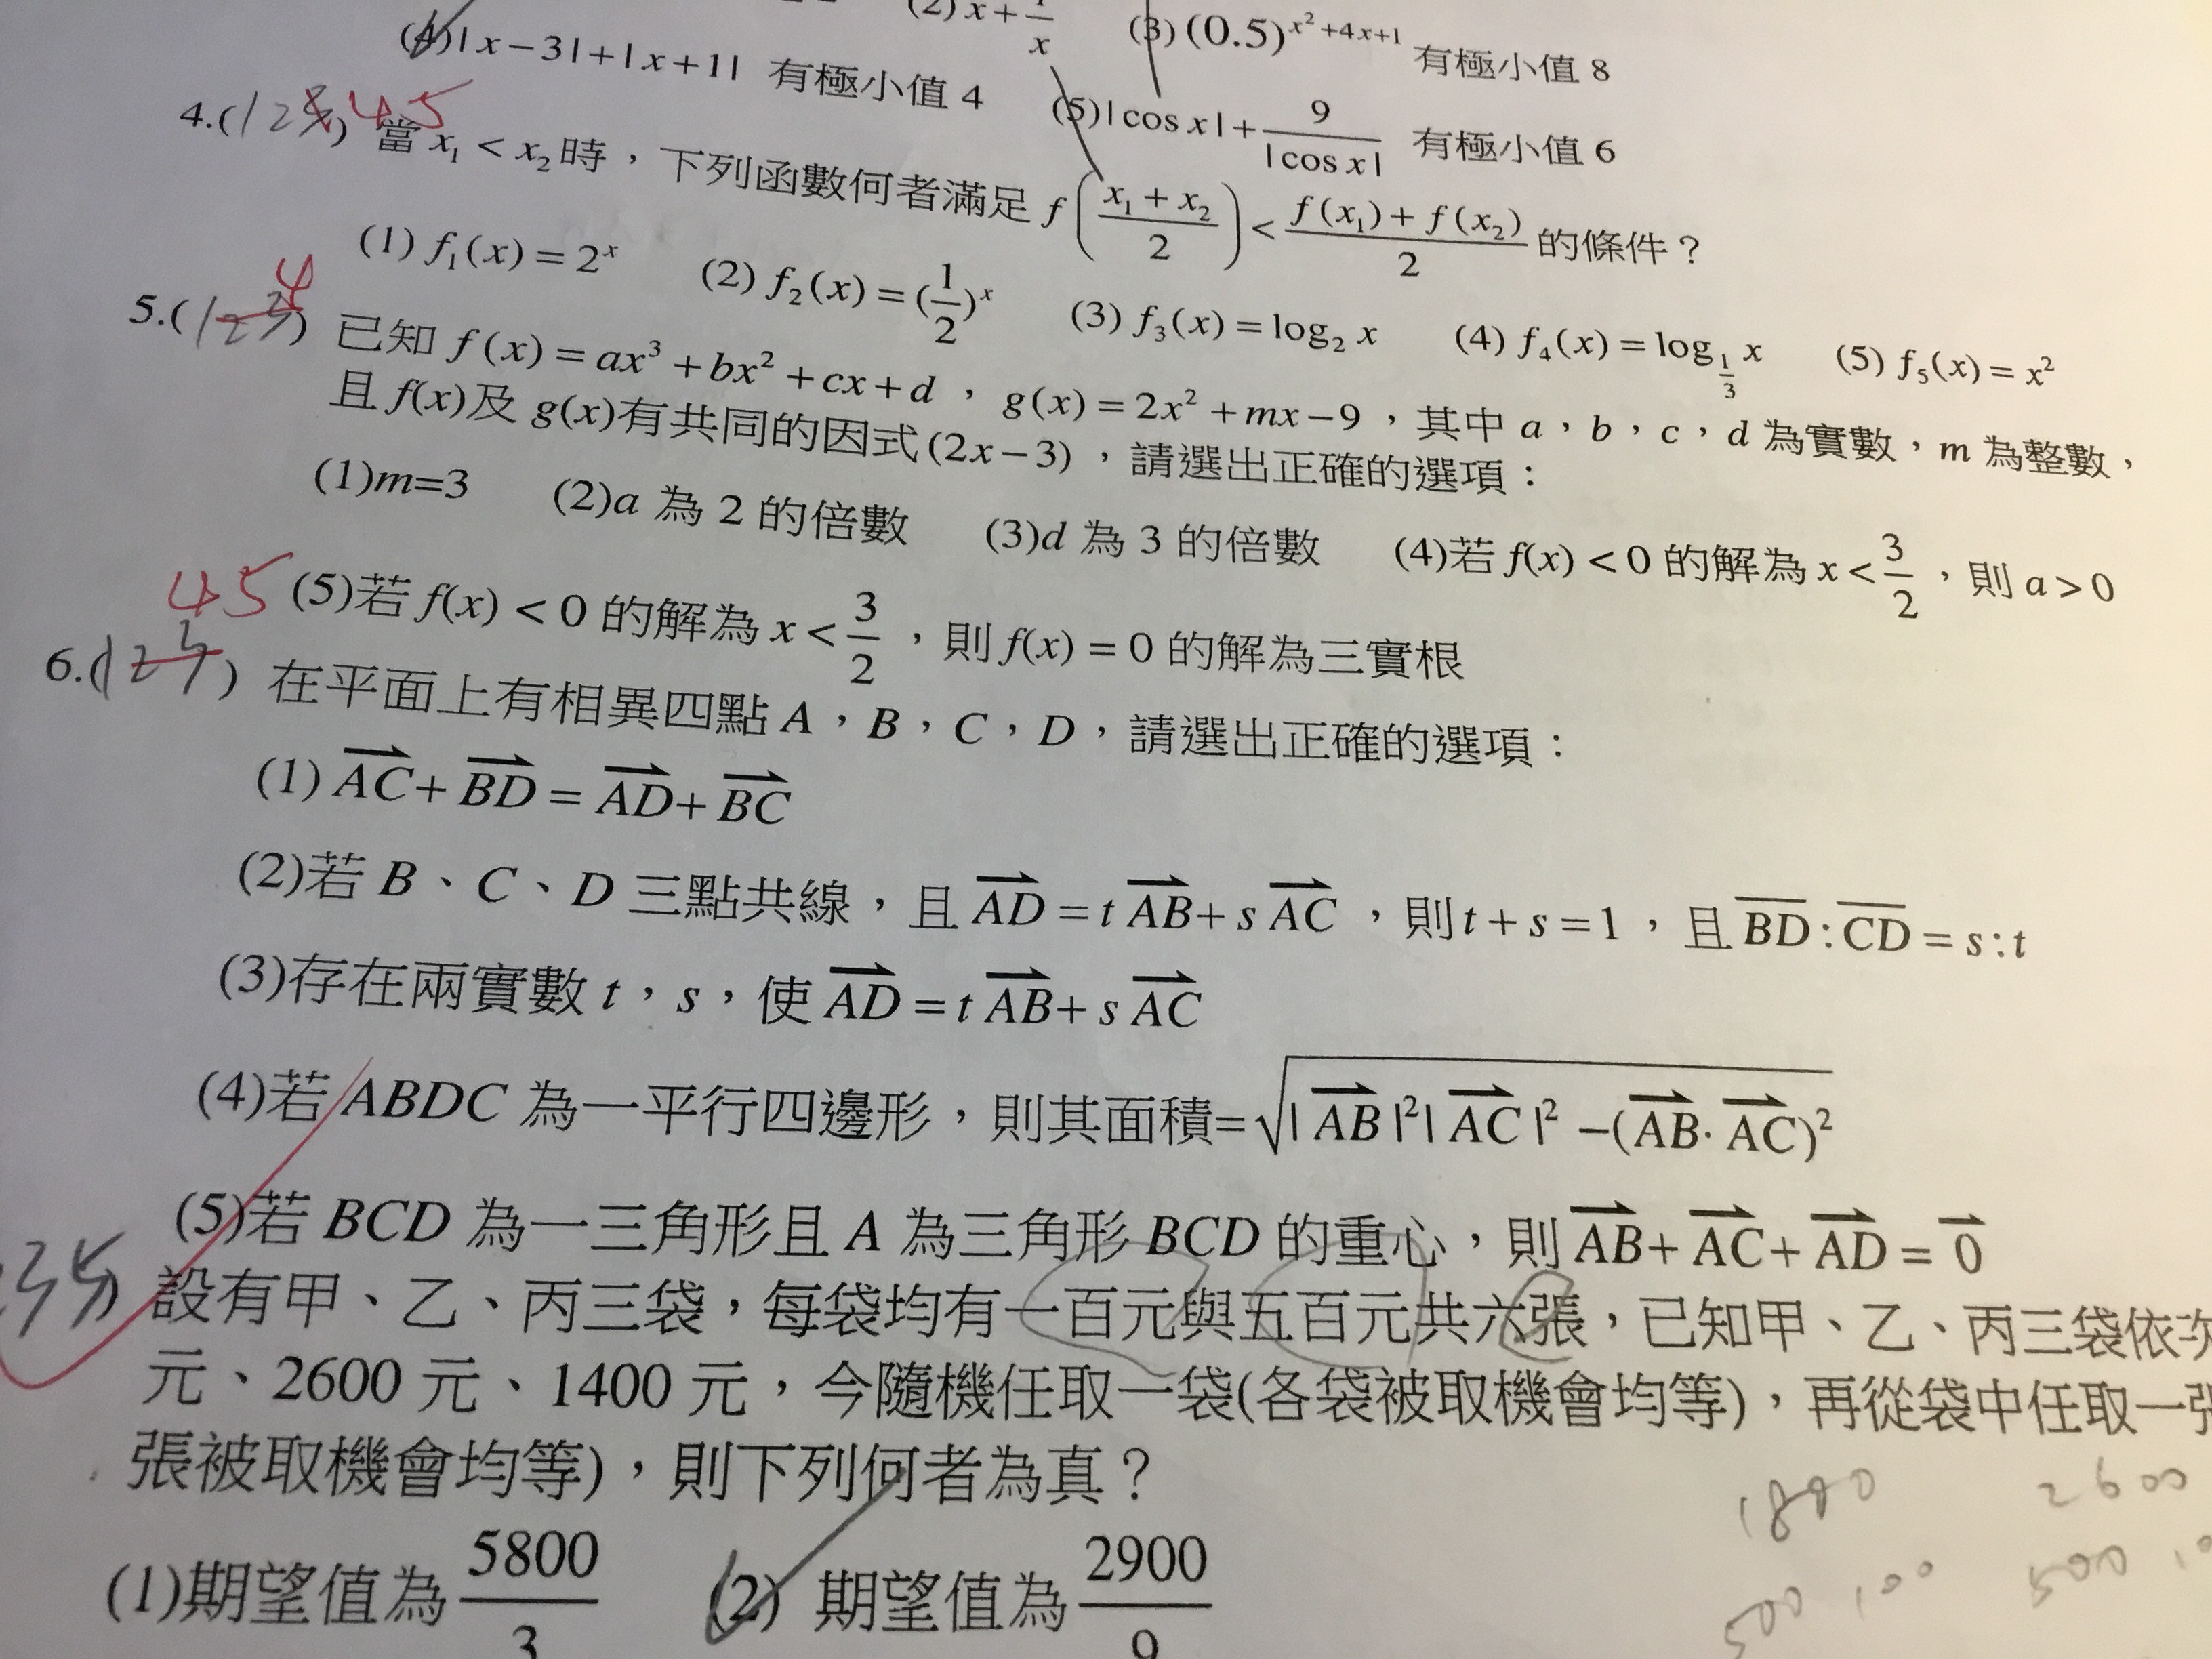 (2) x+1/x (3) (0.5)^{x²+4x+1} 有極小值 8
(4) |x−3|+|x+1| 有極小值 4 (5) |cos x|+9/|cos x| 有極小值 6
4.( 12 ) 45 當 x₁ < x₂ 時，下列函數何者滿足 f((x₁+x₂)/2) < (f(x₁)+f(x₂))/2 的條件？
(1) f₁(x) = 2^x (2) f₂(x) = (1/2)^x (3) f₃(x) = log₂ x (4) f₄(x) = log_{1/3} x (5) f₅(x) = x²
5.( 1 ) 4 已知 f(x) = ax³ + bx² + cx + d ， g(x) = 2x² + mx − 9 ，其中 a ， b ， c ， d 為實數，m 為整數，
且 f(x)及 g(x)有共同的因式(2x−3) ，請選出正確的選項：
(1)m=3 (2)a 為 2 的倍數 (3)d 為 3 的倍數 (4)若 f(x) < 0 的解為 x < 3/2 ，則 a > 0
(5)若 f(x) < 0 的解為 x < 3/2 ，則 f(x) = 0 的解為三實根
6.( 1 ) 45 在平面上有相異四點 A ， B ， C ， D，請選出正確的選項：
(1) AC+ BD = AD+ BC
(2)若 B 、 C 、 D 三點共線，且 AD = t AB+ s AC ，則 t + s = 1 ，且 BD : CD = s : t
(3)存在兩實數 t ， s ，使 AD = t AB+ s AC
(4)若 ABDC 為一平行四邊形，則其面積=√(| AB |²| AC |² −(AB· AC)²)
(5)若 BCD 為一三角形且 A 為三角形 BCD 的重心，則 AB+ AC+ AD = 0
35) 設有甲、乙、丙三袋，每袋均有一百元與五百元共六張，已知甲、乙、丙三袋依次
元、2600 元、1400 元，今隨機任取一袋(各袋被取機會均等)，再從袋中任取一張
張被取機會均等)，則下列何者為真？
(1)期望值為 5800/3 (2) 期望值為 2900/9
1800 2600
500 100 500